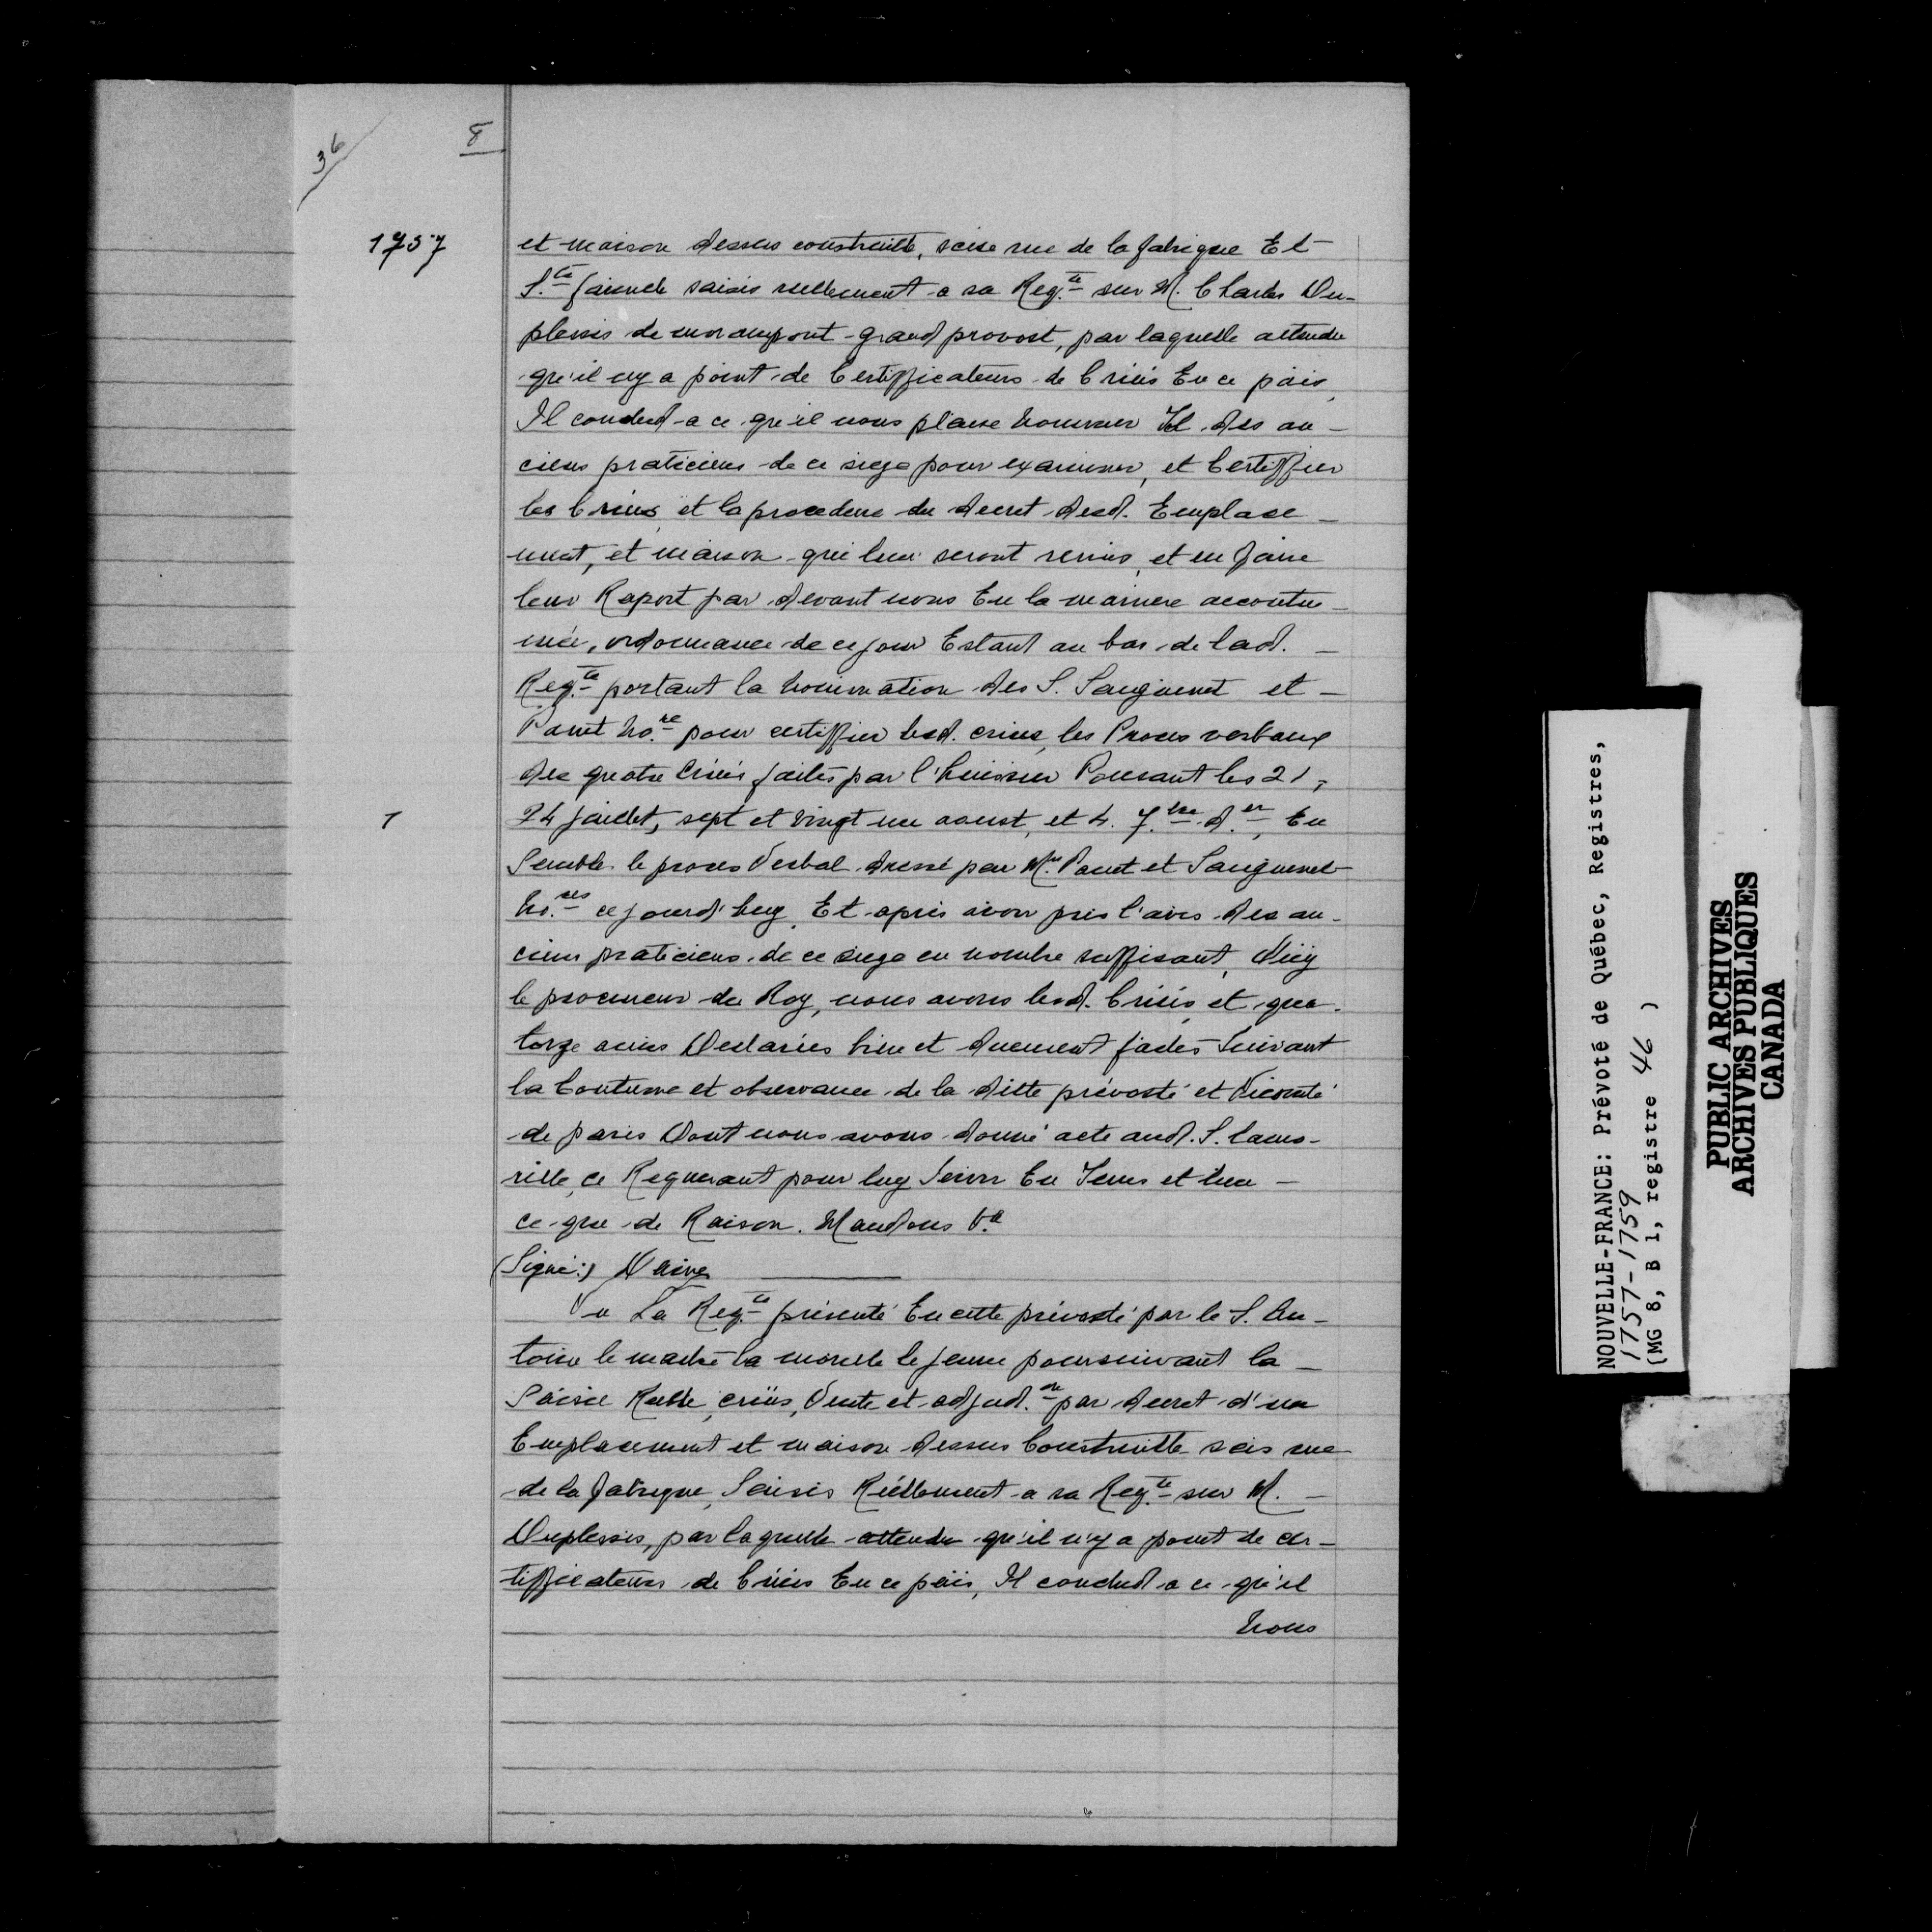 36
8
1757
et maison dessus construitte, scise rue de la fabrique Et
S.te famille saisis reellement a sa Req.te sur M. Charles Du-
plessis de morampont grand provost, par laquelle attendu
qu'il ny a point de Certifficateurs de Criées En ce païs,
Il conclud a ce qu'il nous plaise nommer tel des an-
ciens praticiens de ce siege pour examiner, et Certiffier
les Criées et la procedure du decret desd. Emplace-
ment, et maison qui leur seront remis, et en faire
leur Raport par devant nous En la maniere accoutu-
mée, ordonnance de ce jour Estant au bas de lad.
Req.te portant la nomination des S. Sanguinet et
Panet no.re pour certiffier lesd. criées, les Proces verbaux
des quatre Criées faites par l'huissier Pousant les 21,
24 juillet, sept et vingt un aoust, et 4. 7.bre d.er, En
T
Semble le proces Verbal dressé par M.rs Panet et Sanguinet
no.res ce jourd'huy, Et apris avoir pris l'avis des an-
ciens praticiens de ce siege en nombre suffisant, Oüy
le procureur du Roy, nous avons lesd. Criées, et qua-
torze aines Declarées bien et duement faites Suivant
la Coutume et observance de la ditte prévosté et Vicomté
de paris Dont nous avons donné acte aud. S. lamo-
rille, ce Requerant pour luy Servir En Tems et lieu
ce que de Raison. Mandons &.a
(Signé:) Daine
Vu La Req.te présenté En cette prévosté par le S. An-
toine le maitre la morille le jeune poursuivant la
Saisie Reelle, criées, Vente et adjud.on par decret d'un
Emplacement et maison dessus Construitte scis rue
de la fabrique, Saisis Réellement a sa Req.te sur M.
Duplessis, par laquelle attendu qu'il n'y a point de cer-
tifficateurs de Criées En ce païs, Il conclud a ce qu'il
nous
NOUVELLE-FRANCE: Prévoté de Québec, Registres,
1757-1759
(MG 8, B 1, registre 46 )
PUBLIC ARCHIVES
ARCHIVES PUBLIQUES
CANADA